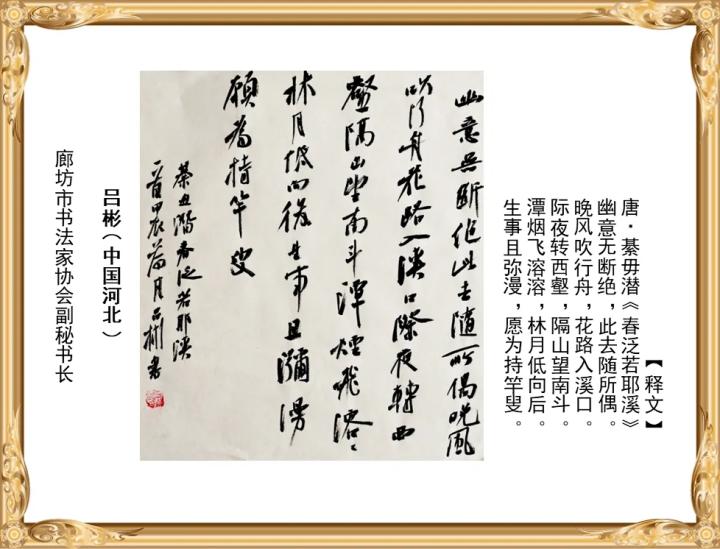 【释文】
唐·綦毋潜《春泛若耶溪》
幽意无断绝，此去随所偶。
晚风吹行舟，花路入溪口。
际夜转西壑，隔山望南斗。
潭烟飞溶溶，林月低向后。
生事且弥漫，愿为持竿叟。
幽意无断绝此去随所偶晚风
吹行舟花路入溪口際夜轉西
壑隔山望南斗潭煙飛溶溶
林月低向後生事且瀰漫
願為持竿叟
綦毋潛春泛若耶溪
一首甲辰荷月吕彬書
吕彬（中国河北）
廊坊市书法家协会副秘书长